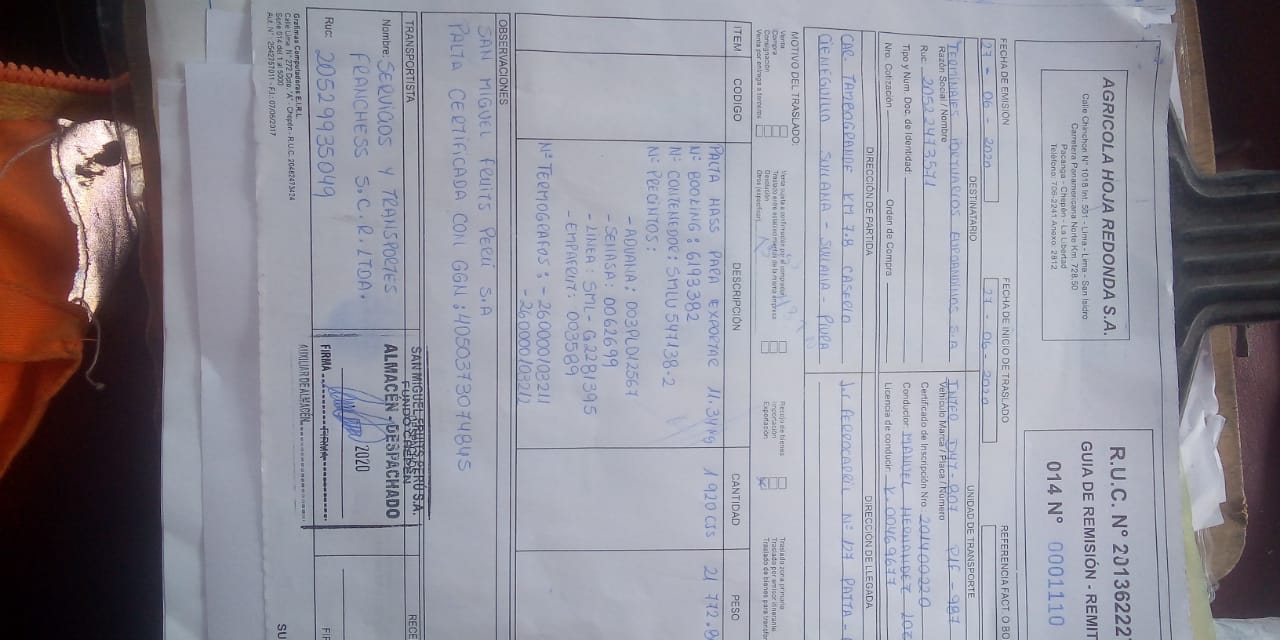 AGRICOLA HOJA REDONDA S.A.
Calle Chinchon N° 1018 Int. 501 - Lima - Lima - San Isidro
Carretera Panamericana Norte Km. 728.50
Pacanga - Chepén - La Libertad
Teléfono: 706-2241 Anexo: 2812
R.U.C. N° 20136222
GUIA DE REMISIÓN - REMIT
014 N° 0001110
FECHA DE EMISIÓN
27 - 06 - 2020
FECHA DE INICIO DE TRASLADO
27 - 06 - 2020
REFERENCIA FACT. O BO
DESTINATARIO
TERMINALES PORTUARIOS EUROANDINOS S.A
Razón Social / Nombre
Ruc: 20522473571
Tipo y Num. Doc. de Identidad:
Nro. Cotización Orden de Compra
UNIDAD DE TRANSPORTE
Vehículo Marca / Placa / Número
Certificado de Inscripción Nro. 201400220
Conductor: MANUEL HERNANDEZ
Licencia de conducir:
DIRECCIÓN DE PARTIDA
CAR. TAMBOGRANDE KM 7.8 CASERIO
CIENEGUILLO SULLANA - SULLANA - PIURA
DIRECCIÓN DE LLEGADA
FERROCARRIL N° 127 PAITA -
MOTIVO DEL TRASLADO:
Venta
Compra
Consignación
Venta por entrega a terceros
Traslado entre establecimientos de la misma empresa
Devolución
Otros (especificar)
Recojo de bienes
Importación
Exportación
Traslado zona primaria
Traslado por emisor itinerante
Traslado de bienes para transfor
ITEM CODIGO DESCRIPCIÓN CANTIDAD PESO
PALTA HASS PARA EXPORTAR 11.34 Kg 1920 CJS 21 772.8
N° BOOKING: 6193382
N° CONTENEDOR: SMLU 547138-2
N° PRECINTOS:
- ADUANA: 003PL012567
- SENASA: 0062699
- LINEA: SML- G2281395
- EMPARUT: 003589
N° TERMOGRAFOS: - 260000103211
- 260000103217
OBSERVACIONES
SAN MIGUEL FRUITS PERÚ S.A
PALTA CERTIFICADA CON GGN: 4050373074845
TRANSPORTISTA
Nombre: SERVICIOS Y TRANSPORTES
FRANCHESS S.C.R.LTDA.
Ruc: 20529935049
SAN MIGUEL FRUITS PERÚ S.A.
ALMACÉN - DESPACHADO
2020
FIRMA
FIRMA
AUXILIAR DE ALMACÉN
RECE
FIR
SU
Grafimas Computadoras E.I.R.L.
Calle Lima N° 272 Dpto. "A" Chepén - R.U.C. 20482473424
Serie 014 del 1 al 5000
Aut. N° 2542757011 - F.I.: 07/06/2017